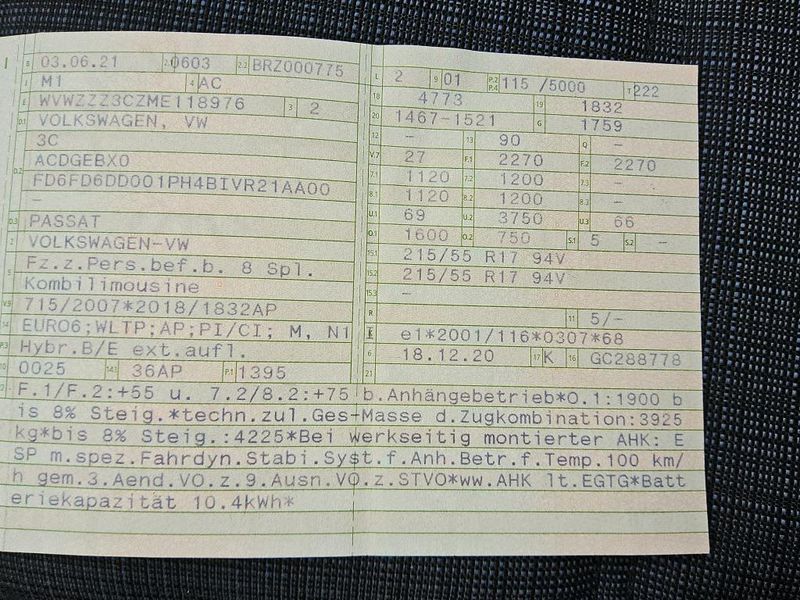 B 03.06.21 2.1 0603 2.2 BRZ000775
J M1 4 AC
E WVWZZZ3CZME118976 3 2
D.1 VOLKSWAGEN, VW
3C
D.2 ACDGEBX0
FD6FD6DD001PH4BIVR21AA00
–
D.3 PASSAT
2 VOLKSWAGEN-VW
5 Fz.z.Pers.bef.b. 8 Spl.
Kombilimousine
V.9 715/2007*2018/1832AP
14 EURO6;WLTP;AP;PI/CI; M, N1
P.3 Hybr.B/E ext.aufl.
10 0025 14.1 36AP P.1 1395
L 2 9 01 P.2 P.4 115 /5000 T 222
18 4773 19 1832
20 1467-1521 G 1759
12 – 13 90 Q –
V.7 27 F.1 2270 F.2 2270
7.1 1120 7.2 1200 7.3 –
8.1 1120 8.2 1200 8.3 –
U.1 69 U.2 3750 U.3 66
O.1 1600 O.2 750 S.1 5 S.2 –
15.1 215/55 R17 94V
15.2 215/55 R17 94V
15.3 –
R 11 5/–
K e1*2001/116*0307*68
6 18.12.20 17 K 16 GC288778
21
22 F.1/F.2:+55 u. 7.2/8.2:+75 b.Anhängebetrieb*O.1:1900 b
is 8% Steig.*techn.zul.Ges-Masse d.Zugkombination:3925
kg*bis 8% Steig.:4225*Bei werkseitig montierter AHK: E
SP m.spez.Fahrdyn.Stabi.Syst.f.Anh.Betr.f.Temp.100 km/
h gem.3.Aend.VO.z.9.Ausn.VO.z.STVO*ww.AHK lt.EGTG*Batt
eriekapazität 10.4kWh*